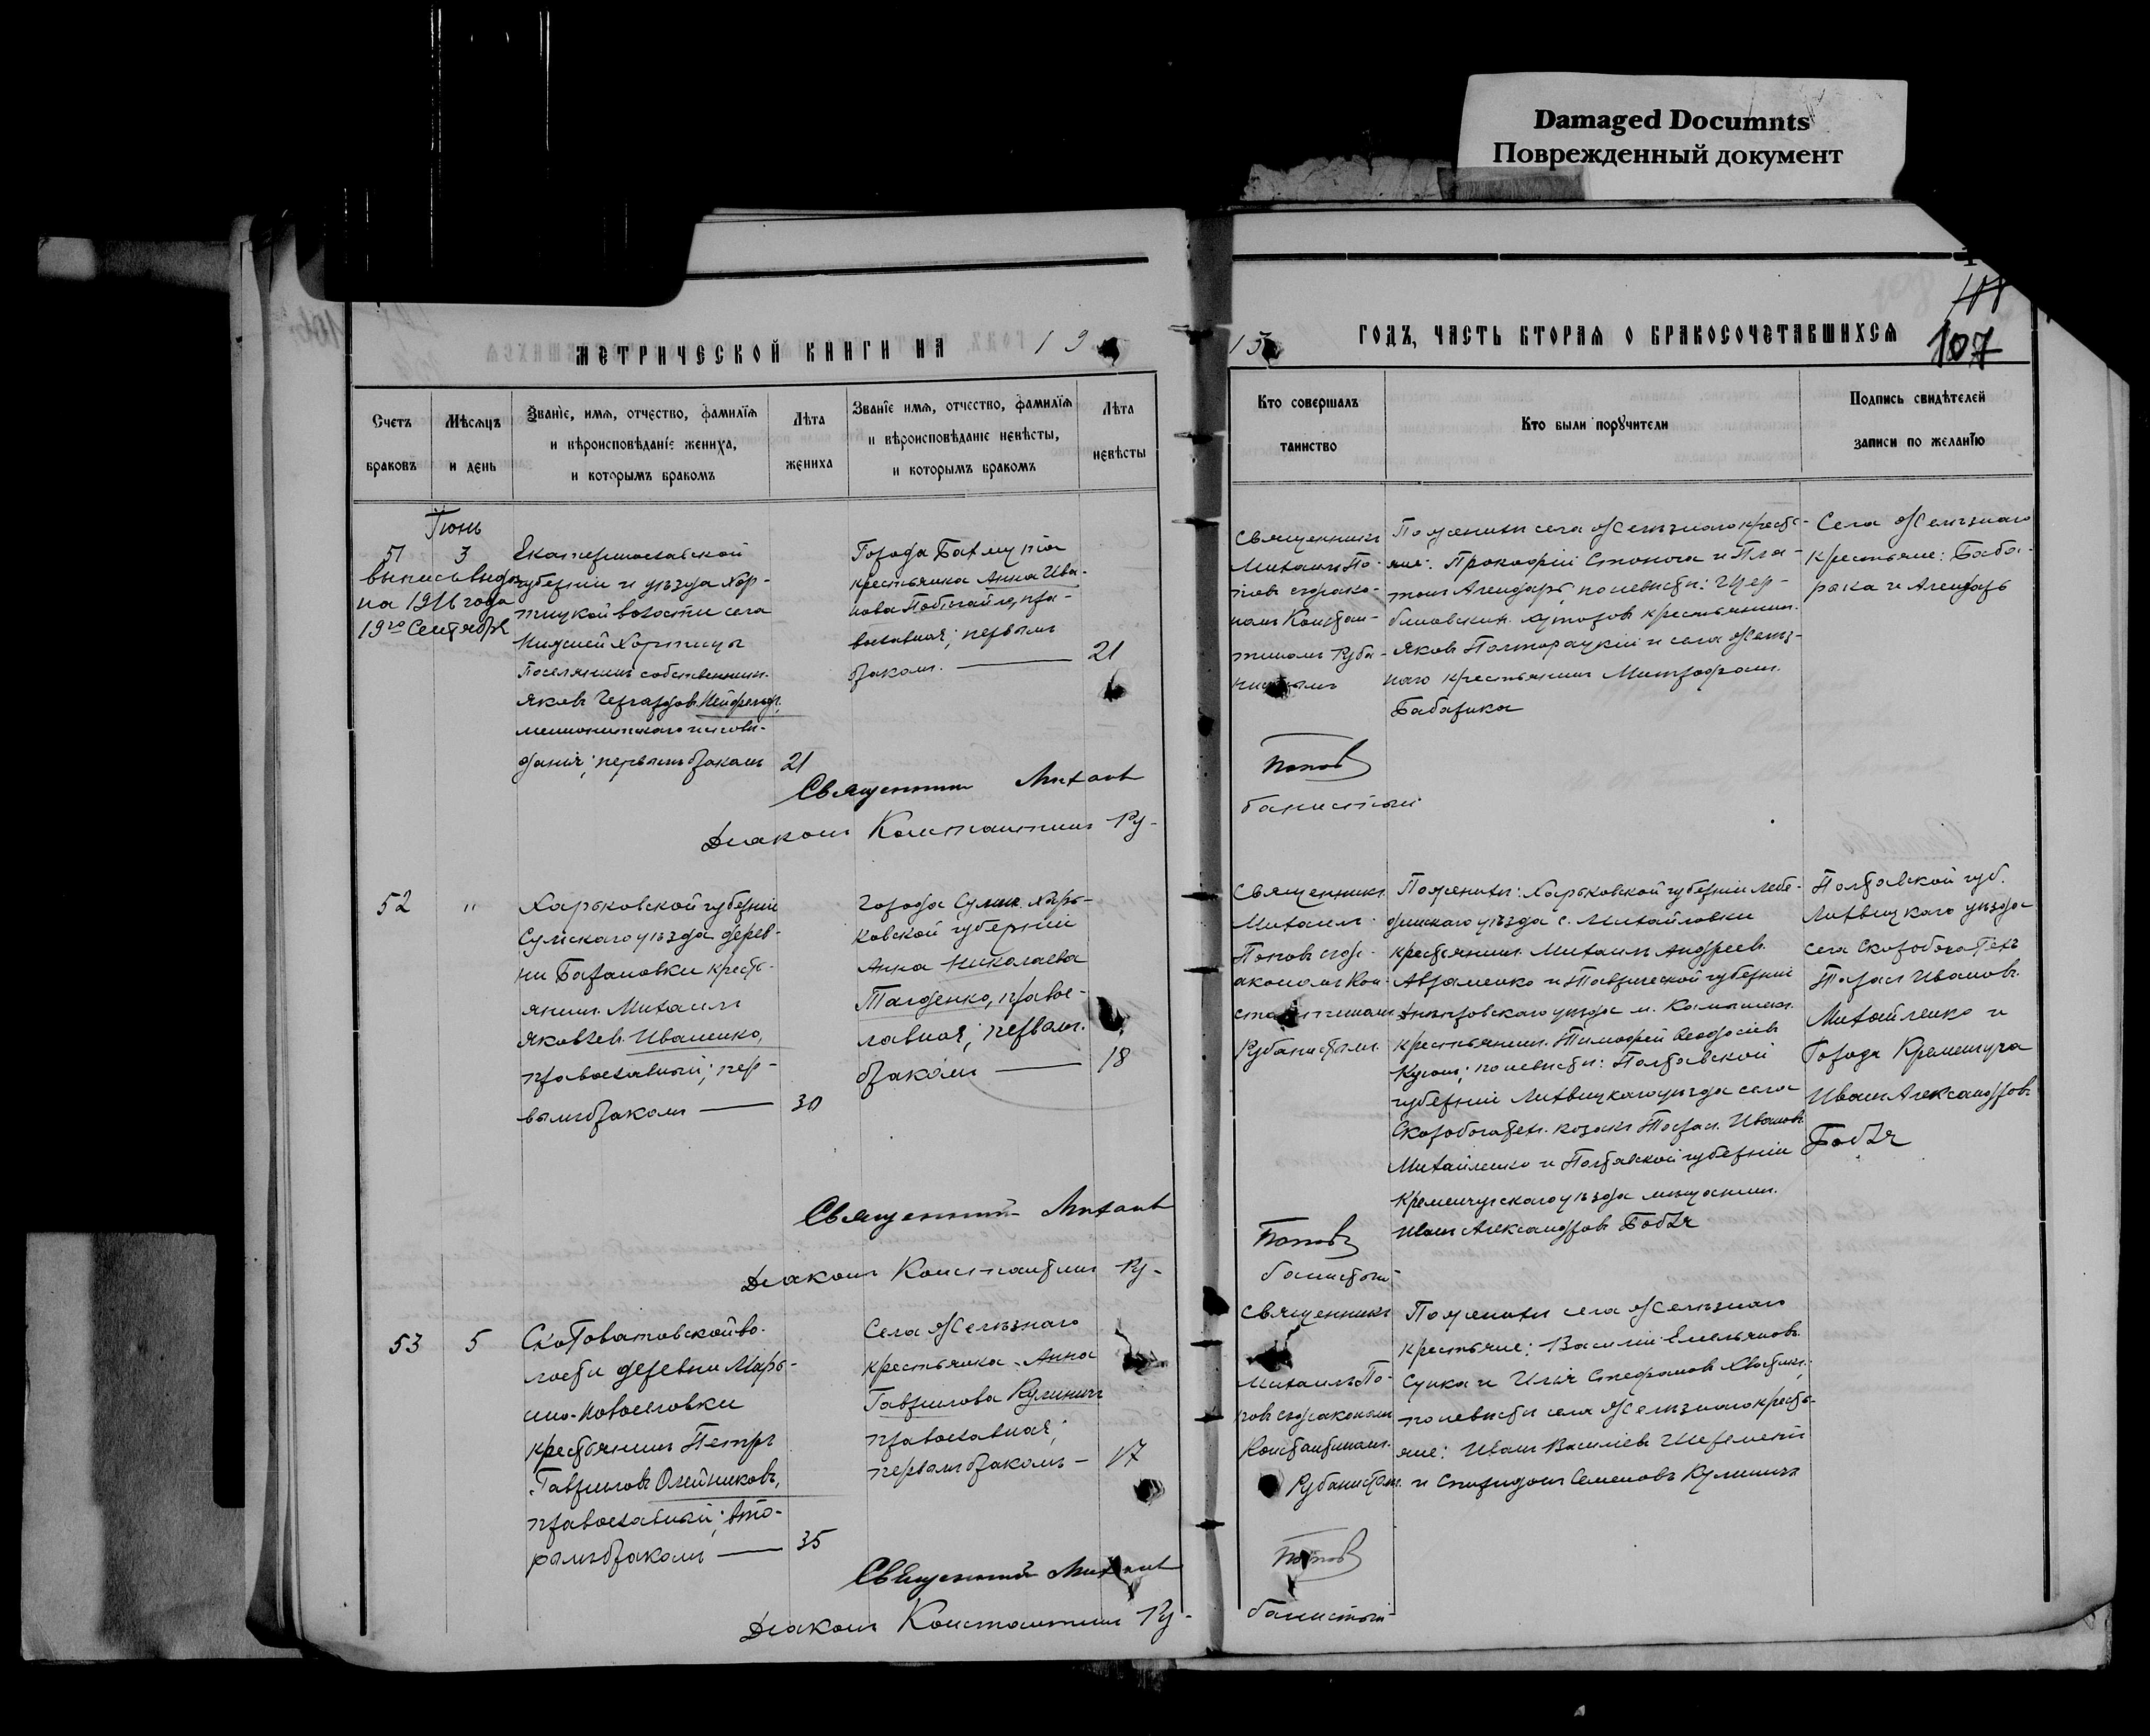 Damaged Documnts
Поврежденный документ
107
МЕТРИЧЕСКОЙ КНИГИ НА 19
15 ГОДЪ, ЧАСТЬ ВТОРАЯ О БРАКОСОЧЕТАВШИХСЯ
Счетъ браковъ
Мѣсяцъ и день
Званіе, имя, отчество, фамилія
и вѣроисповѣданіе жениха,
и которымъ бракомъ
Лѣта жениха
Званіе имя, отчество, фамилія
и вѣроисповѣданіе невѣсты,
и которымъ бракомъ
Лѣта невѣсты
Кто совершалъ
таинство
Кто были поручители
Подпись свидѣтелей
записи по желанію
Іюнь
51
3
выпись выда
на 1916 года
19го Сентября
Екатеринославской
губерніи и уѣзда Хор-
тицкой волости села
Нижней Хортицы
Поселянинъ собственникъ
Яковъ Гергардовъ Нейфельдъ,
меннонитскаго исповѣ-
данія; первымъ бракомъ
21
Города Бахмута
крестьянка Анна Ива-
нова, пра-
вославная; первымъ
бракомъ.
21
Священникъ
Михаилъ По-
повъ съ діако-
номъ Констан-
тиномъ Руба-
Поженихѣ села Желѣзнаго кресть-
яне: Прокофій и Пла-
тонъ, по невѣстѣ:
хуторовъ крестьянинъ
Яковъ Полторацкій и села Желѣз-
наго крестьянинъ Митрофанъ
Бабарика
Села Желѣзнаго
крестьяне: Баба-
рика и
Священникъ Михаилъ Попов
Діаконъ Константинъ Ру-
банистый
52
"
Харьковской губерніи
Сумскаго уѣзда дерев-
ни Баташовки кресть-
янинъ Михаилъ
Яковлевъ Иваненко,
православный; пер-
вымъ бракомъ
30
Города Сумъ Харь-
ковской губерніи
Анна Николаева
правос-
лавная; первымъ
бракомъ
18
Священникъ
Михаилъ
Поповъ съ ді-
акономъ Кон-
стантиномъ
Рубанистымъ
Поженихѣ: Харьковской губерніи Лебе-
динскаго уѣзда с. Михайловки
крестьянинъ Михаилъ Андреевъ
Авраменко и Таврической губерніи
Днѣпровскаго уѣзда м. Каменки
крестьянинъ Тимофей Феодосіевъ
по невѣстѣ: Полтавской
губерніи Лохвицкаго уѣзда села
Скоробогатекъ козакъ Тарасъ Ивановъ
Михайленко и Полтавской губерніи
Кременчугскаго уѣзда мѣщанинъ
Иванъ Александровъ
Полтавской губ.
Лохвицкаго уѣзда
села Скоробогатекъ
Тарасъ Ивановъ
Михайленко и
Города Кременчуга
Иванъ Александровъ
Священникъ Михаилъ Попов
Діаконъ Константинъ Ру-
банистый
53
5
Скотоватовской во-
лости деревни Марь-
ино-Новоселовки
крестьянинъ Петръ
Гавриловъ Олейниковъ,
православный; вто-
рымъ бракомъ
35
Села Желѣзнаго
крестьянка Анна
Гаврилова Кулиничъ
православная;
первымъ бракомъ
17
Священникъ
Михаилъ По-
повъ съ діакономъ
Константиномъ
Рубанистымъ
Поженихѣ села Желѣзнаго
крестьяне: Василій Емельяновъ
и Илія Стефановъ
по невѣстѣ села Желѣзнаго кресть-
яне: Иванъ Василіевъ Шереметъ
и Спиридонъ Семеновъ Кулиничъ
Священникъ Михаилъ Попов
Діаконъ Константинъ Ру-
банистый